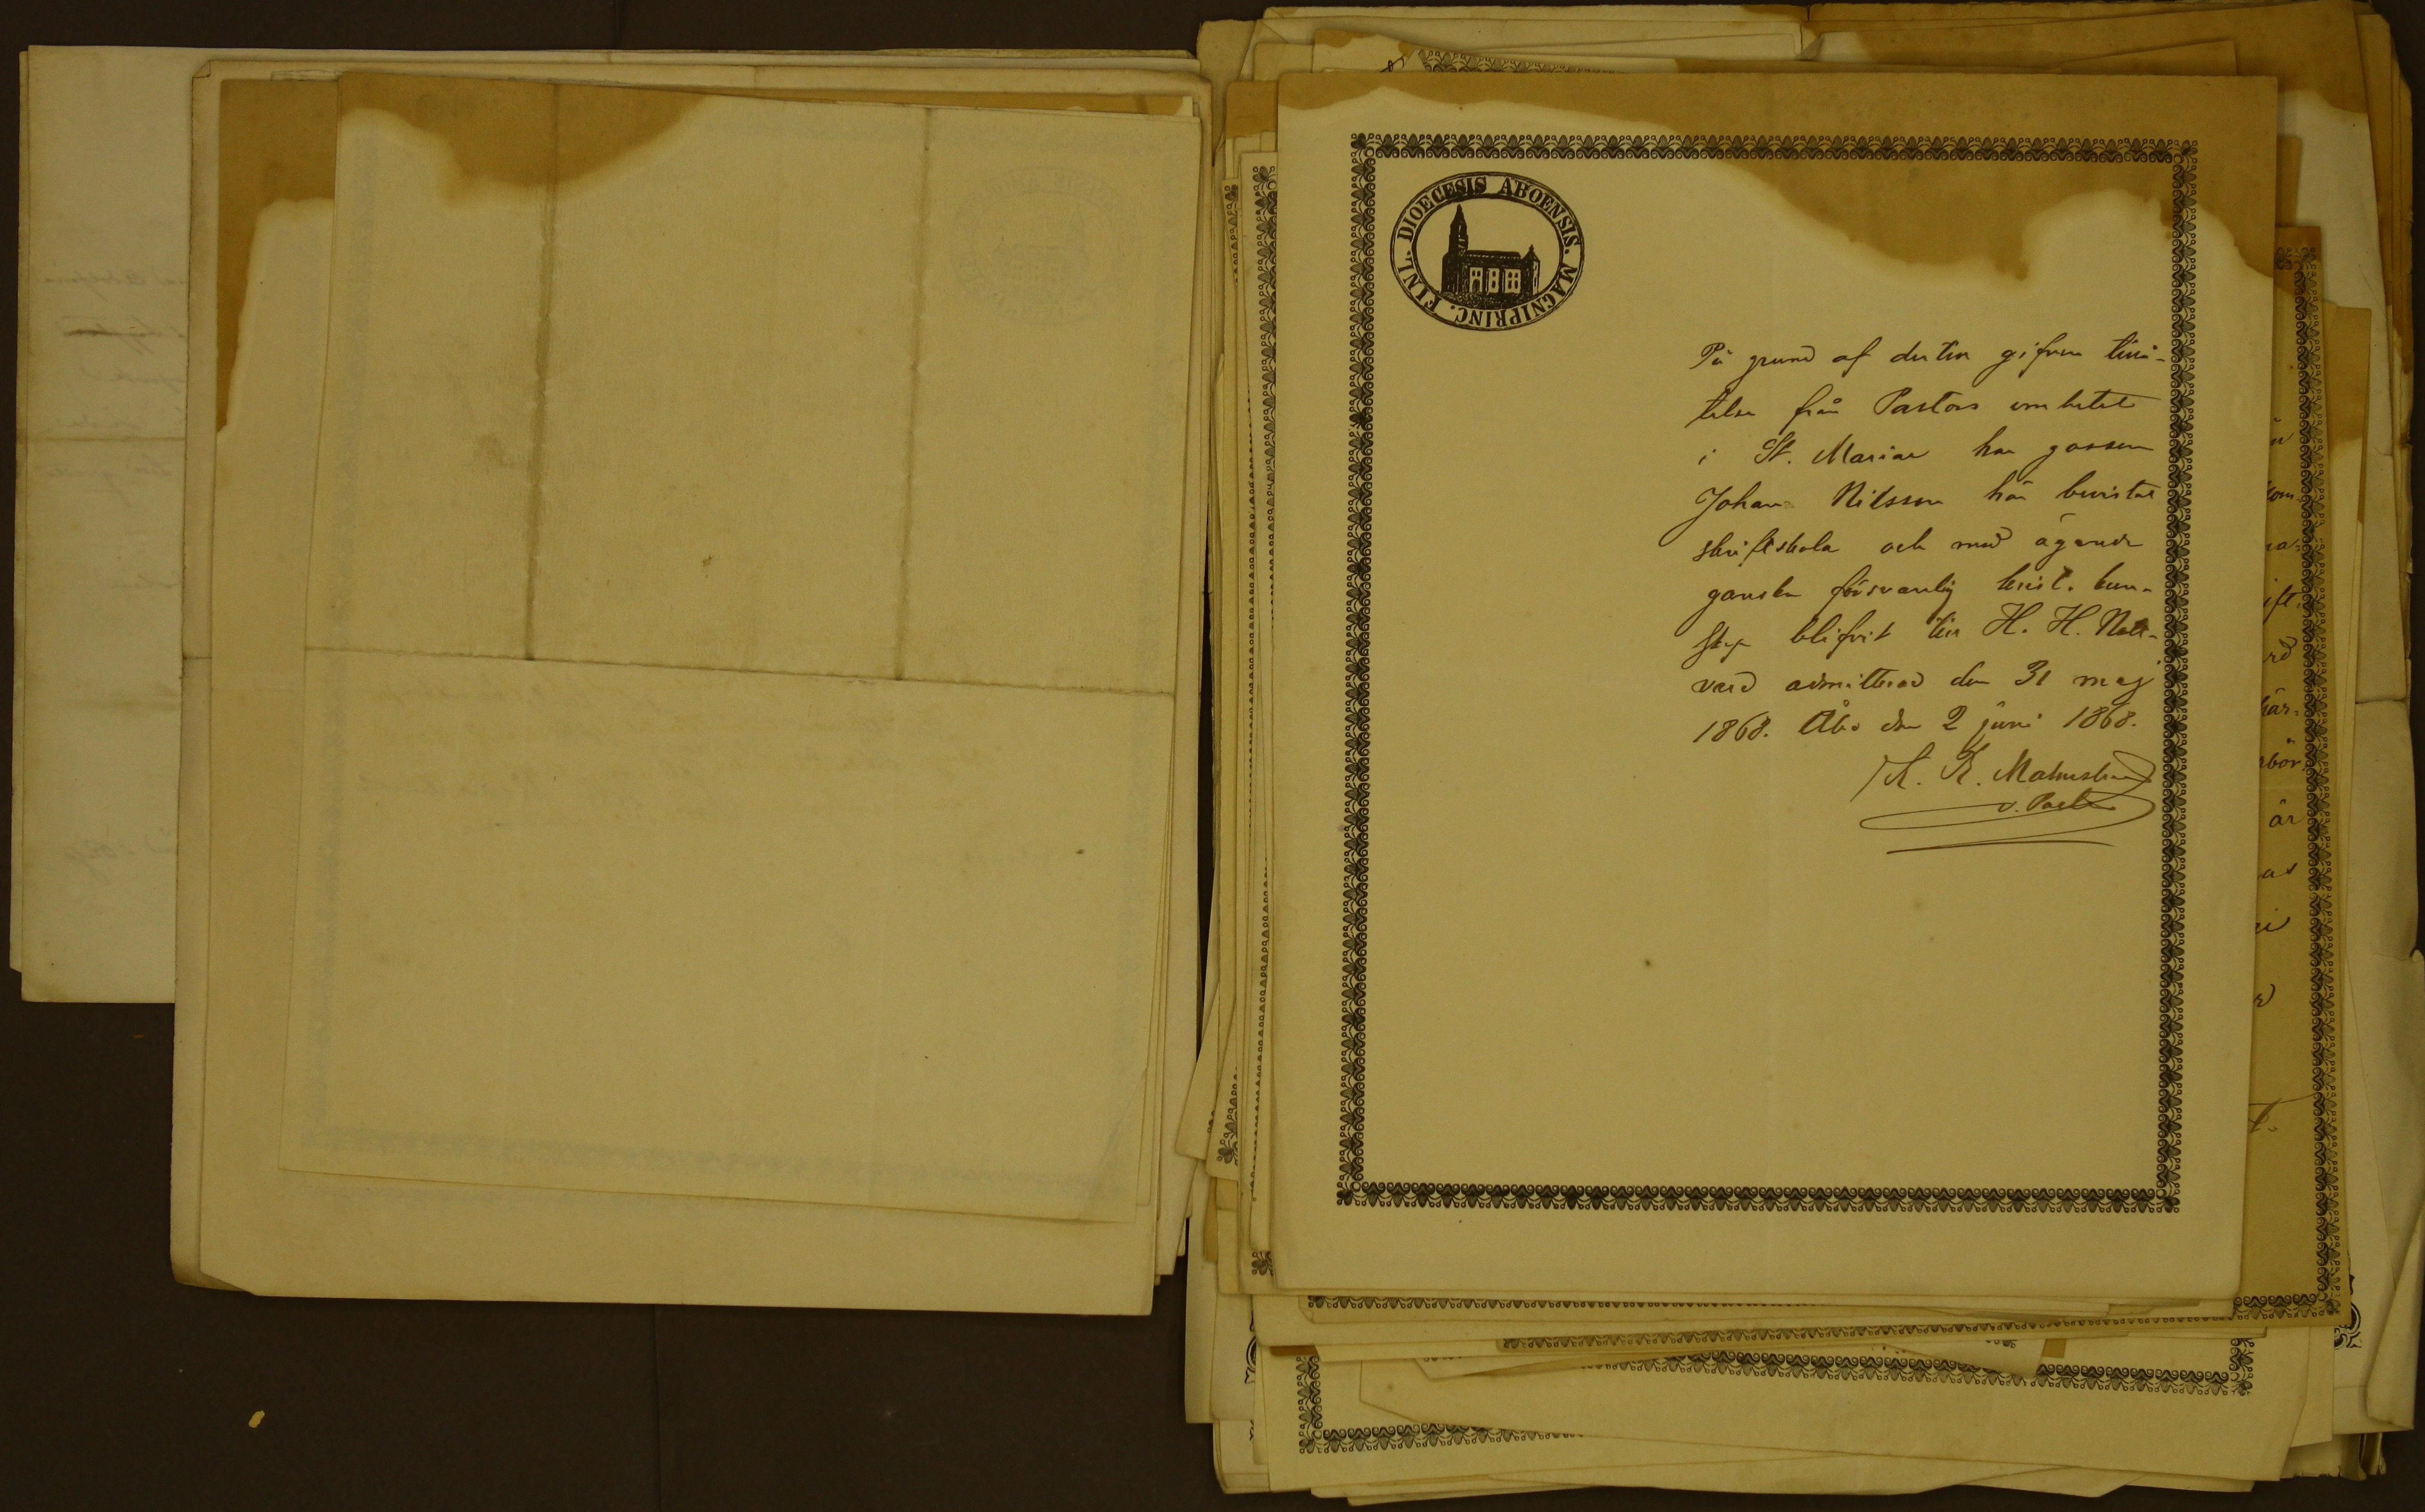 DIOECESIS ABOENSIS. MAGNIPRINC. FINL.
På grund af dertill gifven tillå-
telse från Pastors embetet
i St. Mariae har gossen
Johan Nilsson här bevistat
skriftskola och med ägande
ganska försvarlig krist. kun-
skap blifvit till H. H. Natt-
vard admitterad den 31 maj
1868. Åbo den 2 juni 1868.
K. K. Malmström
v. Pastor
som
ift
rd
här-
bör
är
as